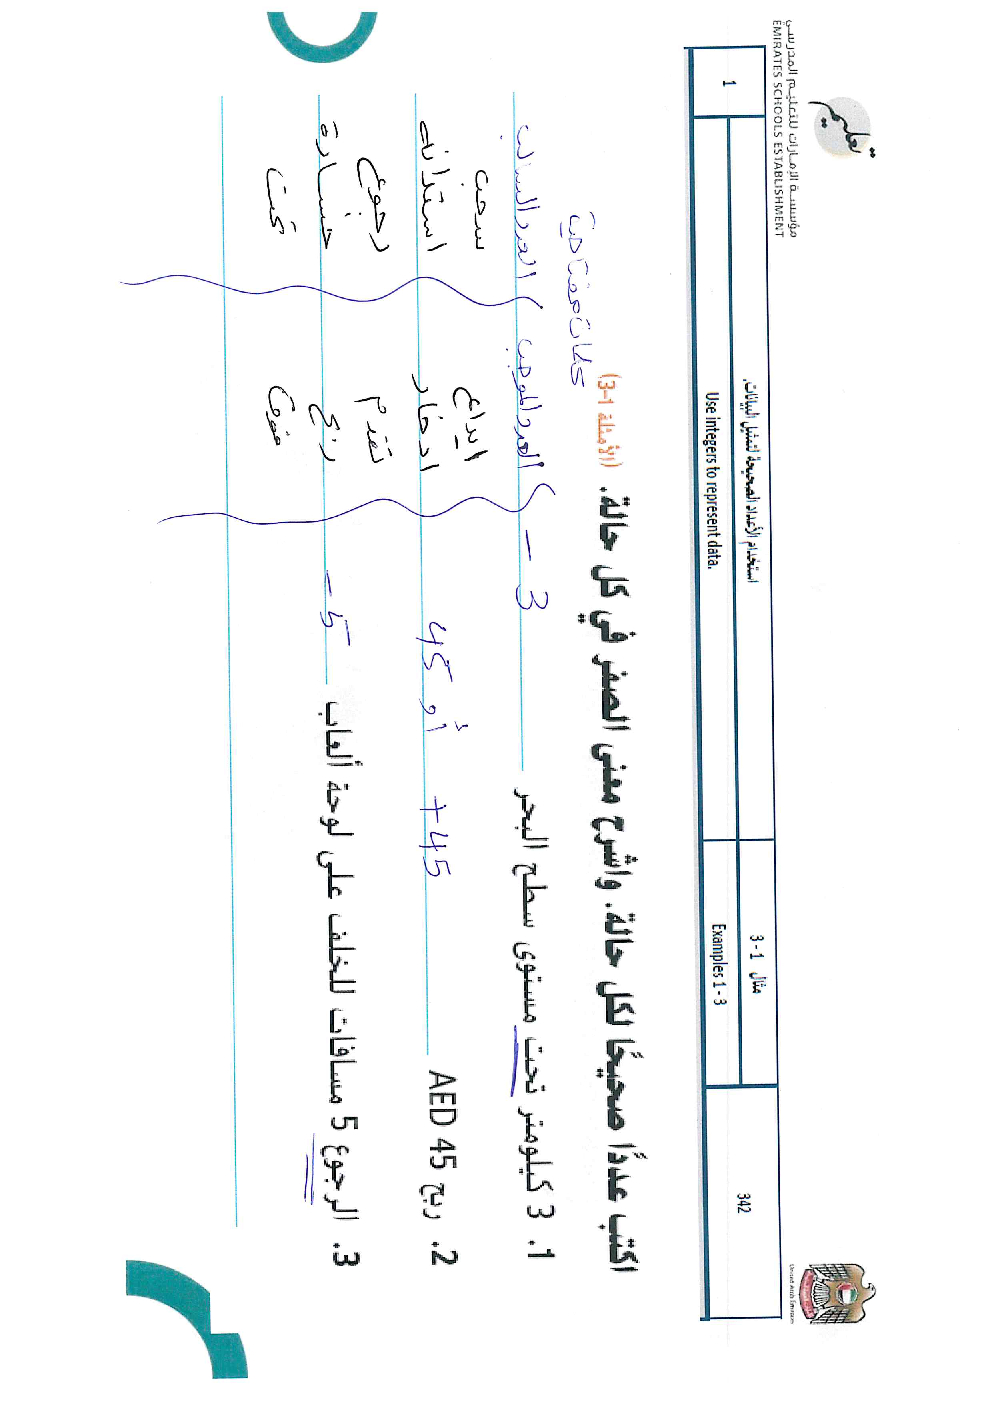 مؤسسة الإمارات للتعليم المدرسي
EMIRATES SCHOOLS ESTABLISHMENT
United Arab Emirates
1
استخدام الأعداد الصحيحة لتمثيل البيانات.
Use integers to represent data.
مثال 1-3
Examples 1 - 3
342
اكتب عددًا صحيحًا لكل حالة. واشرح معنى الصفر في كل حالة. (الأمثلة 1-3)
كلمات مفتاحية
1. 3 كيلومتر تحت مستوى سطح البحر
- 3
2. ربح AED 45
+45 أو 45
3. الرجوع 5 مسافات للخلف على لوحة ألعاب
- 5
العدد الموجب
ايداع
ادخار
تقدم
ربح
فوق
العدد السالب
سحب
استدانة
رجوع
خسارة
تحت